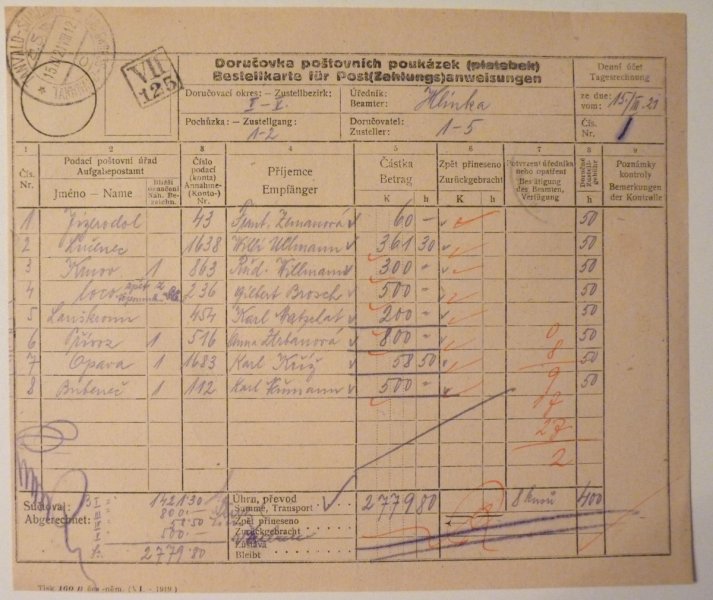 Doručovka poštovních poukázek (platebek)
Bestellkarte für Post(Zahlungs)anweisungen
VII
125
Doručovací okres: – Zustellbezirk: Úředník: Hlinka
I–X. Beamter:
Pochůzka: – Zustellgang: Doručovatel: 1-5
1-2 Zusteller:
Denní účet
Tagesrechnung
ze dne: 15/III 21
vom:
Čís. 1
Nr.
1 2 3 4 5 6 7 8 9
Čís. Nr. Podací poštovní úřad Aufgabepostamt Jméno – Name Bližší označení Näh. Bezeichn. Číslo podací (konta) Annahme- (Konto-) Nr. Příjemce Empfänger Částka Betrag K h Zpět přineseno Zurückgebracht K h Potvrzení úředníka neho opatření Bestätigung des Beamten, Verfügung Doručné Zustell- gebühr h Poznámky kontroly Bemerkungen der Kontrolle
1 43 Frant. Zemanová 60 – 50
2 Lučenec 1638 Willi Ullmann 361 30 50
3 Krnov 1 863 Rud. Willmann 300 – 50
4 loco 236 Gilbert Brosch 500 – 50
5 Lanškroun 454 Karl 200 – 50
6 Přívoz 1 516 Anna 800 – 50
7 Opava 1 1683 Karl Kříž 58 50 50
8 Bubeneč 1 112 Karl 500 – 50
0
8
9
27
2
Súčtoval: B. I 1421·30 Úhrn, převod 2779 80 8 kusů 400
Abgerechnet: 800·– Summe, Transport
58·50 Zpět přineseno
500·– Zurückgebracht
2779·80 Zůstává
Bleibt
Tisk 160 D čes.-něm. (VI. - 1919)